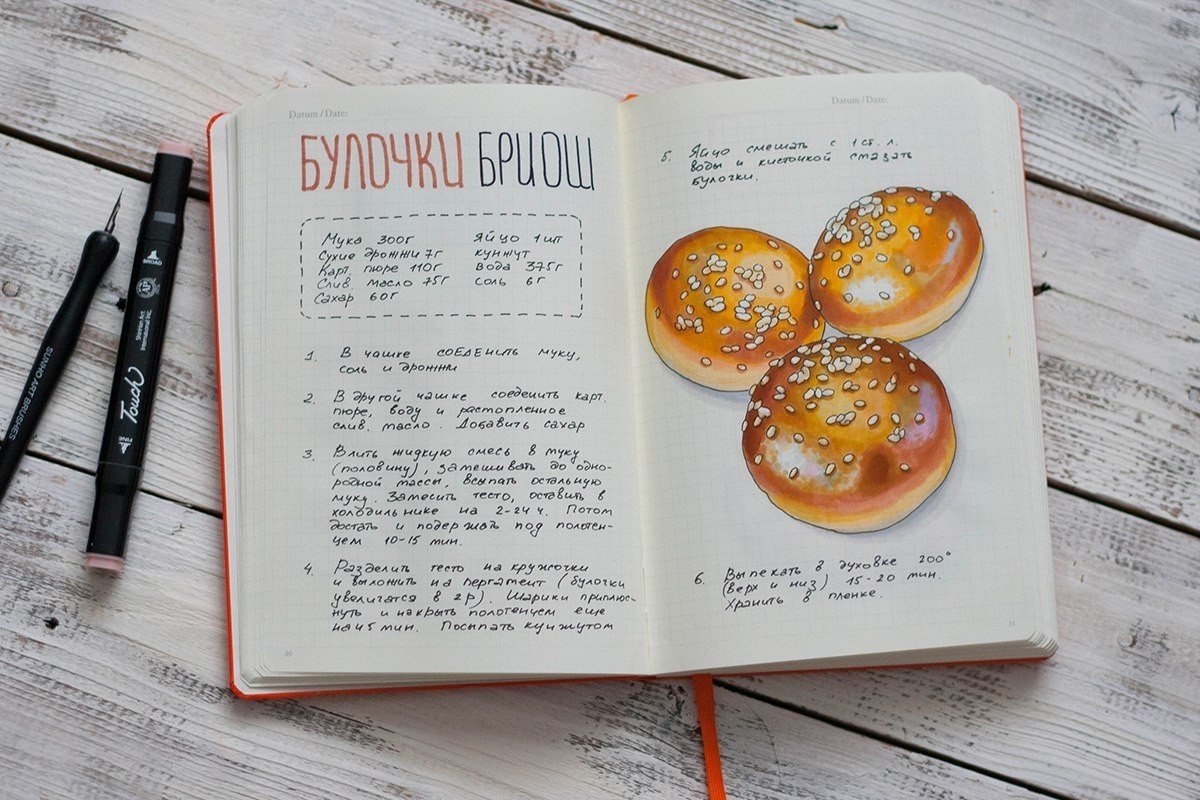 Datum / Date:
БУЛОЧКИ БРИОШ
Мука 300г
Сухие дрожжи 7г
Карт. пюре 110г
Слив. масло 75г
Сахар 60г
Яйцо 1 шт
кунжут
Вода 375г
соль 6г
1. В чашке соеденить муку,
соль и дрожжи
2. В другой чашке соеденить карт.
пюре, воду и растопленное
слив. масло. Добавить сахар
3. Влить жидкую смесь в муку
(половину), замешивать до одно-
родной массы, всыпать остальную
муку. Замесить тесто, оставить в
холодильнике на 2-24 ч. Потом
достать и подержать под полотен-
цем 10-15 мин.
4. Разделить тесто на кружочки
и выложить на пергамент (булочки
увеличатся в 2р). Шарики приплюс-
нуть и накрыть полотенцем еще
на 45 мин. Посыпать кунжутом
30
Datum / Date:
5. Яйцо смешать с 1 ст. л.
воды и кисточкой смазать
булочки.
6. Выпекать в духовке 200°
(верх и низ) 15-20 мин.
Хранить в пленке.
31
SUNHO ART BRUSHES
BROAD
AP
ShinHan Art
International Inc.
Touch
FINE